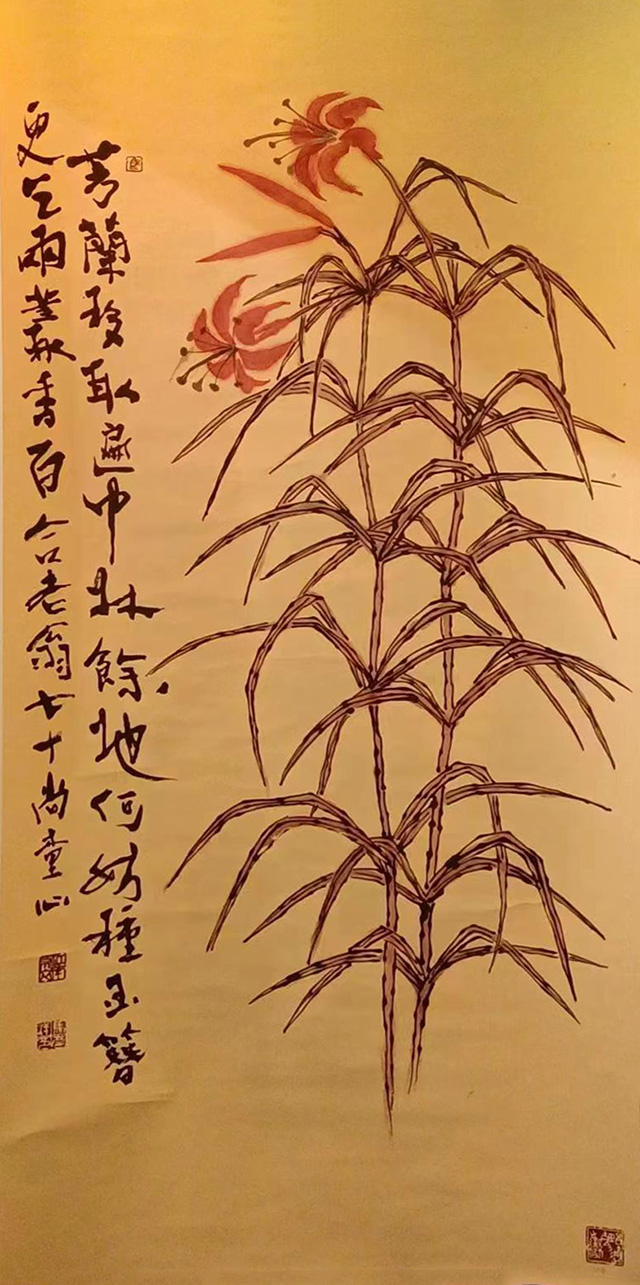 芳蘭移取遍中林餘地何妨種玉簪
更乞兩叢香百合老翁七十尚童心